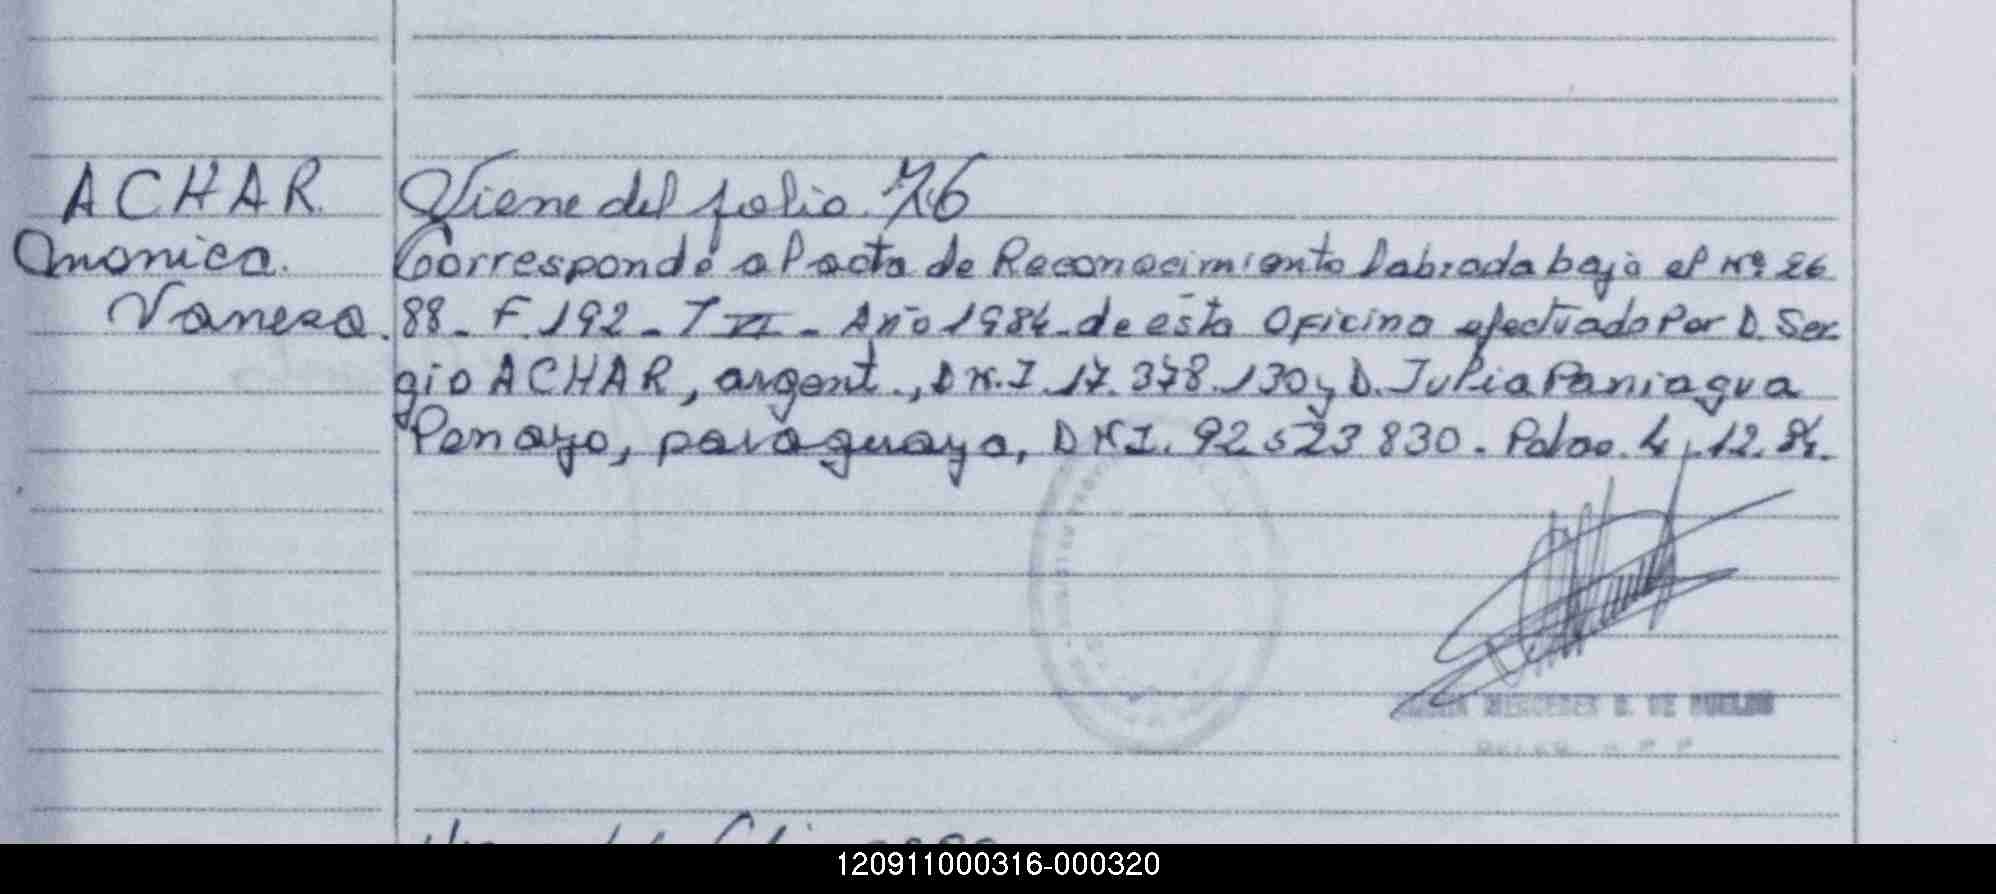 ACHAR
Monica
Vanesa.
Viene del folio 76
Corresponde al acta de Reconocimiento labrada bajo el Nº 26
88 - F. 192 - T VI - Año 1984 - de esta Oficina efectuado Por D. Ser-
gio ACHAR, argent., DN.I. 17.378.130 y D. Julia Paniagua
Penayo, paraguaya, DNI. 92523830. Pdas. 4.12.84.
MERCEDES
120911000316-000320